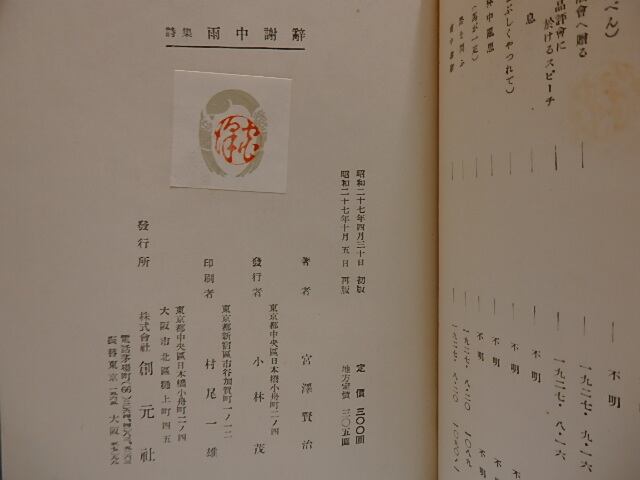 べん)
會へ贈る
品評會に
於けるスピーチ
息
ぶしくやつれて)
不明
一九二七・九・一六
一九二七・八・一六
不明
不明
不明
不明
詩集 雨中謝辭
昭和二十七年四月三十日 初版
昭和二十七年十月五日 再版
定價 三〇〇圓
地方定價 三〇五圓
著者 宮澤賢治
發行者 東京都中央區日本橋小舟町二ノ四 小林茂
印刷者 東京都新宿區市谷加賀町一ノ一二 村尾一雄
發行所
東京都中央區日本橋小舟町二ノ四
大阪市北區樋上町四五
株式會社 創元社